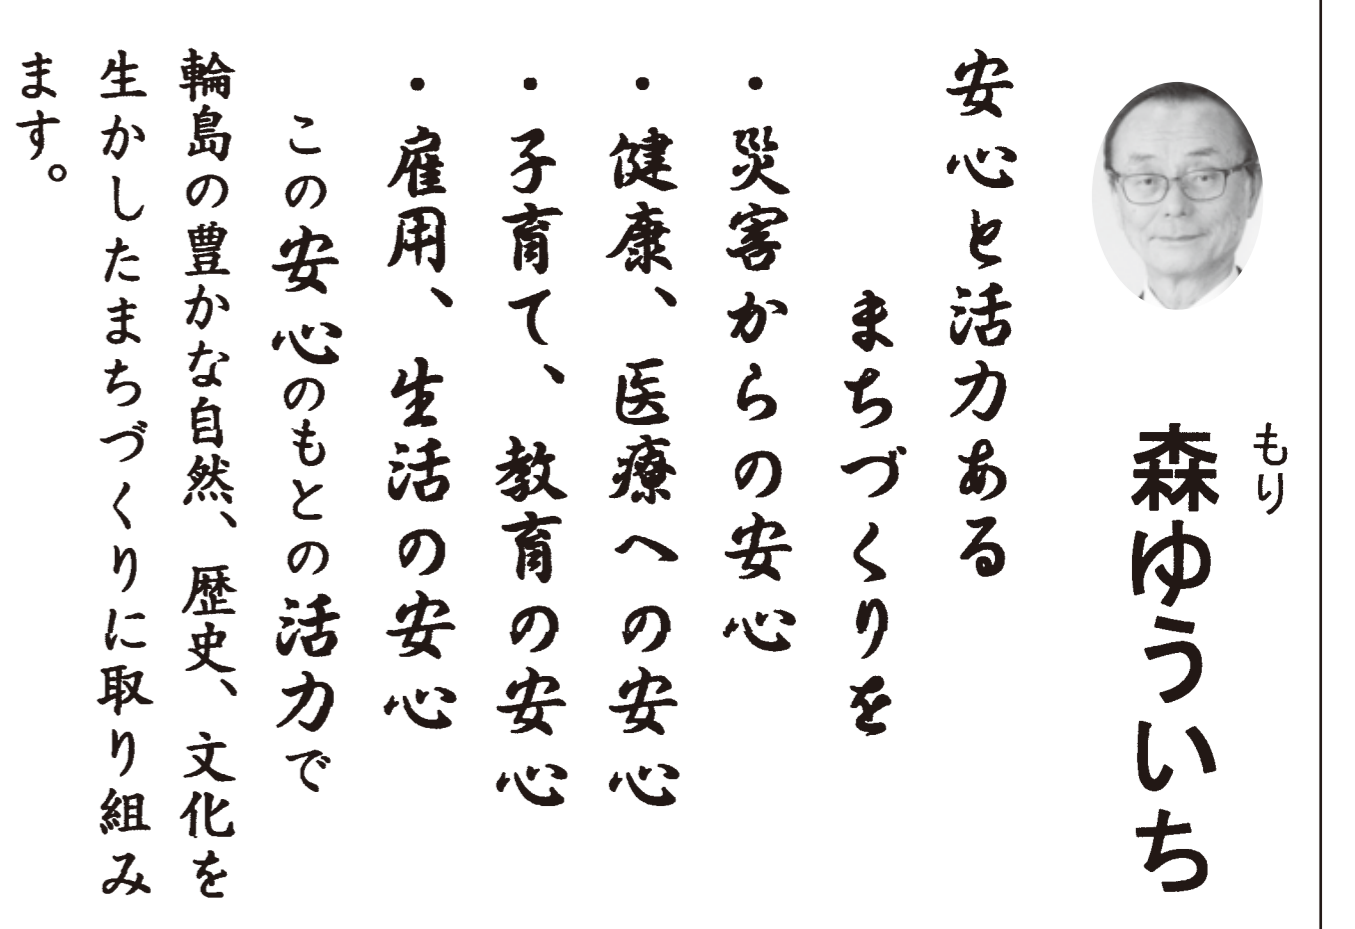 もり
森ゆういち
安心と活力ある
まちづくりを
・災害からの安心
・健康、医療への安心
・子育て、教育の安心
・雇用、生活の安心
この安心のもとの活力で
輪島の豊かな自然、歴史、文化を
生かしたまちづくりに取り組み
ます。